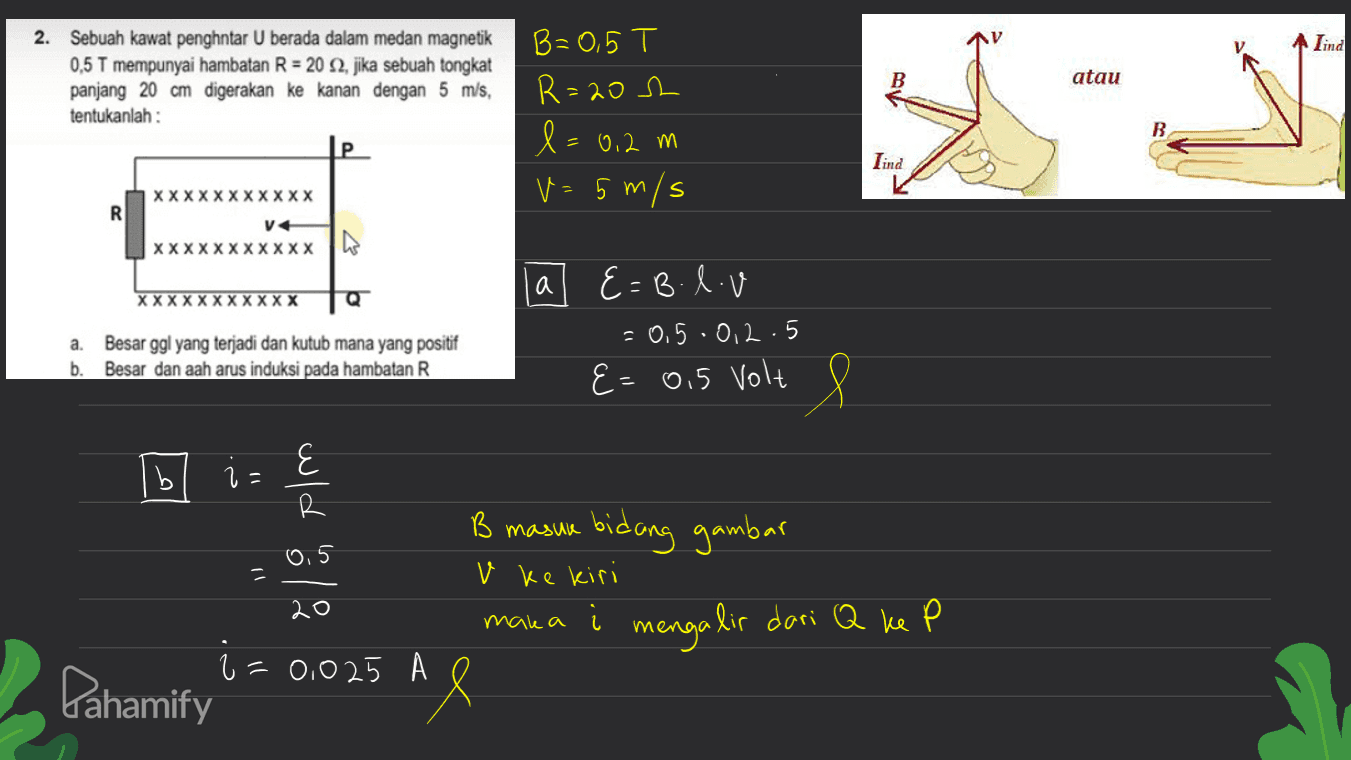 2. Sebuah kawat penghntar U berada dalam medan magnetik
0,5 T mempunyai hambatan R = 20 Ω, jika sebuah tongkat
panjang 20 cm digerakan ke kanan dengan 5 m/s,
tentukanlah :
P
X X X X X X X X X X X
R
V
X X X X X X X X X X X
X X X X X X X X X X X
Q
a. Besar ggl yang terjadi dan kutub mana yang positif
b. Besar dan aah arus induksi pada hambatan R
B = 0,5 T
R = 20 Ω
l = 0,2 m
V = 5 m/s
V
B
Iind
atau
V
Iind
B
a ε = B · l · v
= 0,5 · 0,2 · 5
ε = 0,5 Volt
b i = ε / R
= 0,5 / 20
i = 0,025 A
B masuk bidang gambar
V ke kiri
maka i mengalir dari Q ke P
Pahamify